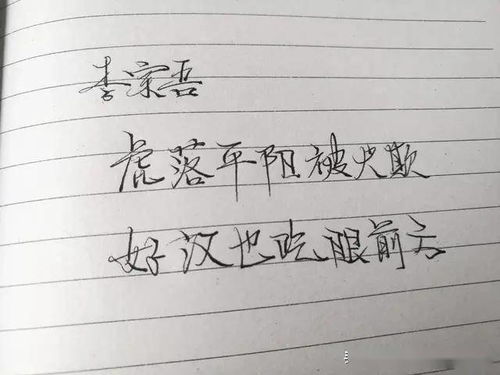 李宗吾
虎落平阳被犬欺
好汉也吃眼前亏